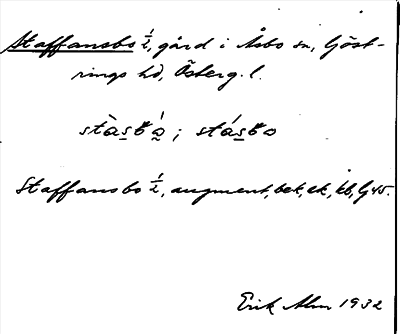 Staffansbo ½, gård i Åsbo sn, Göst-
rings hd, Österg. l.
stàsbò̱ ; stásbo
Staffansbo ½, augment, bek, ek, kb, Gj 45.
Erik Alm 1932